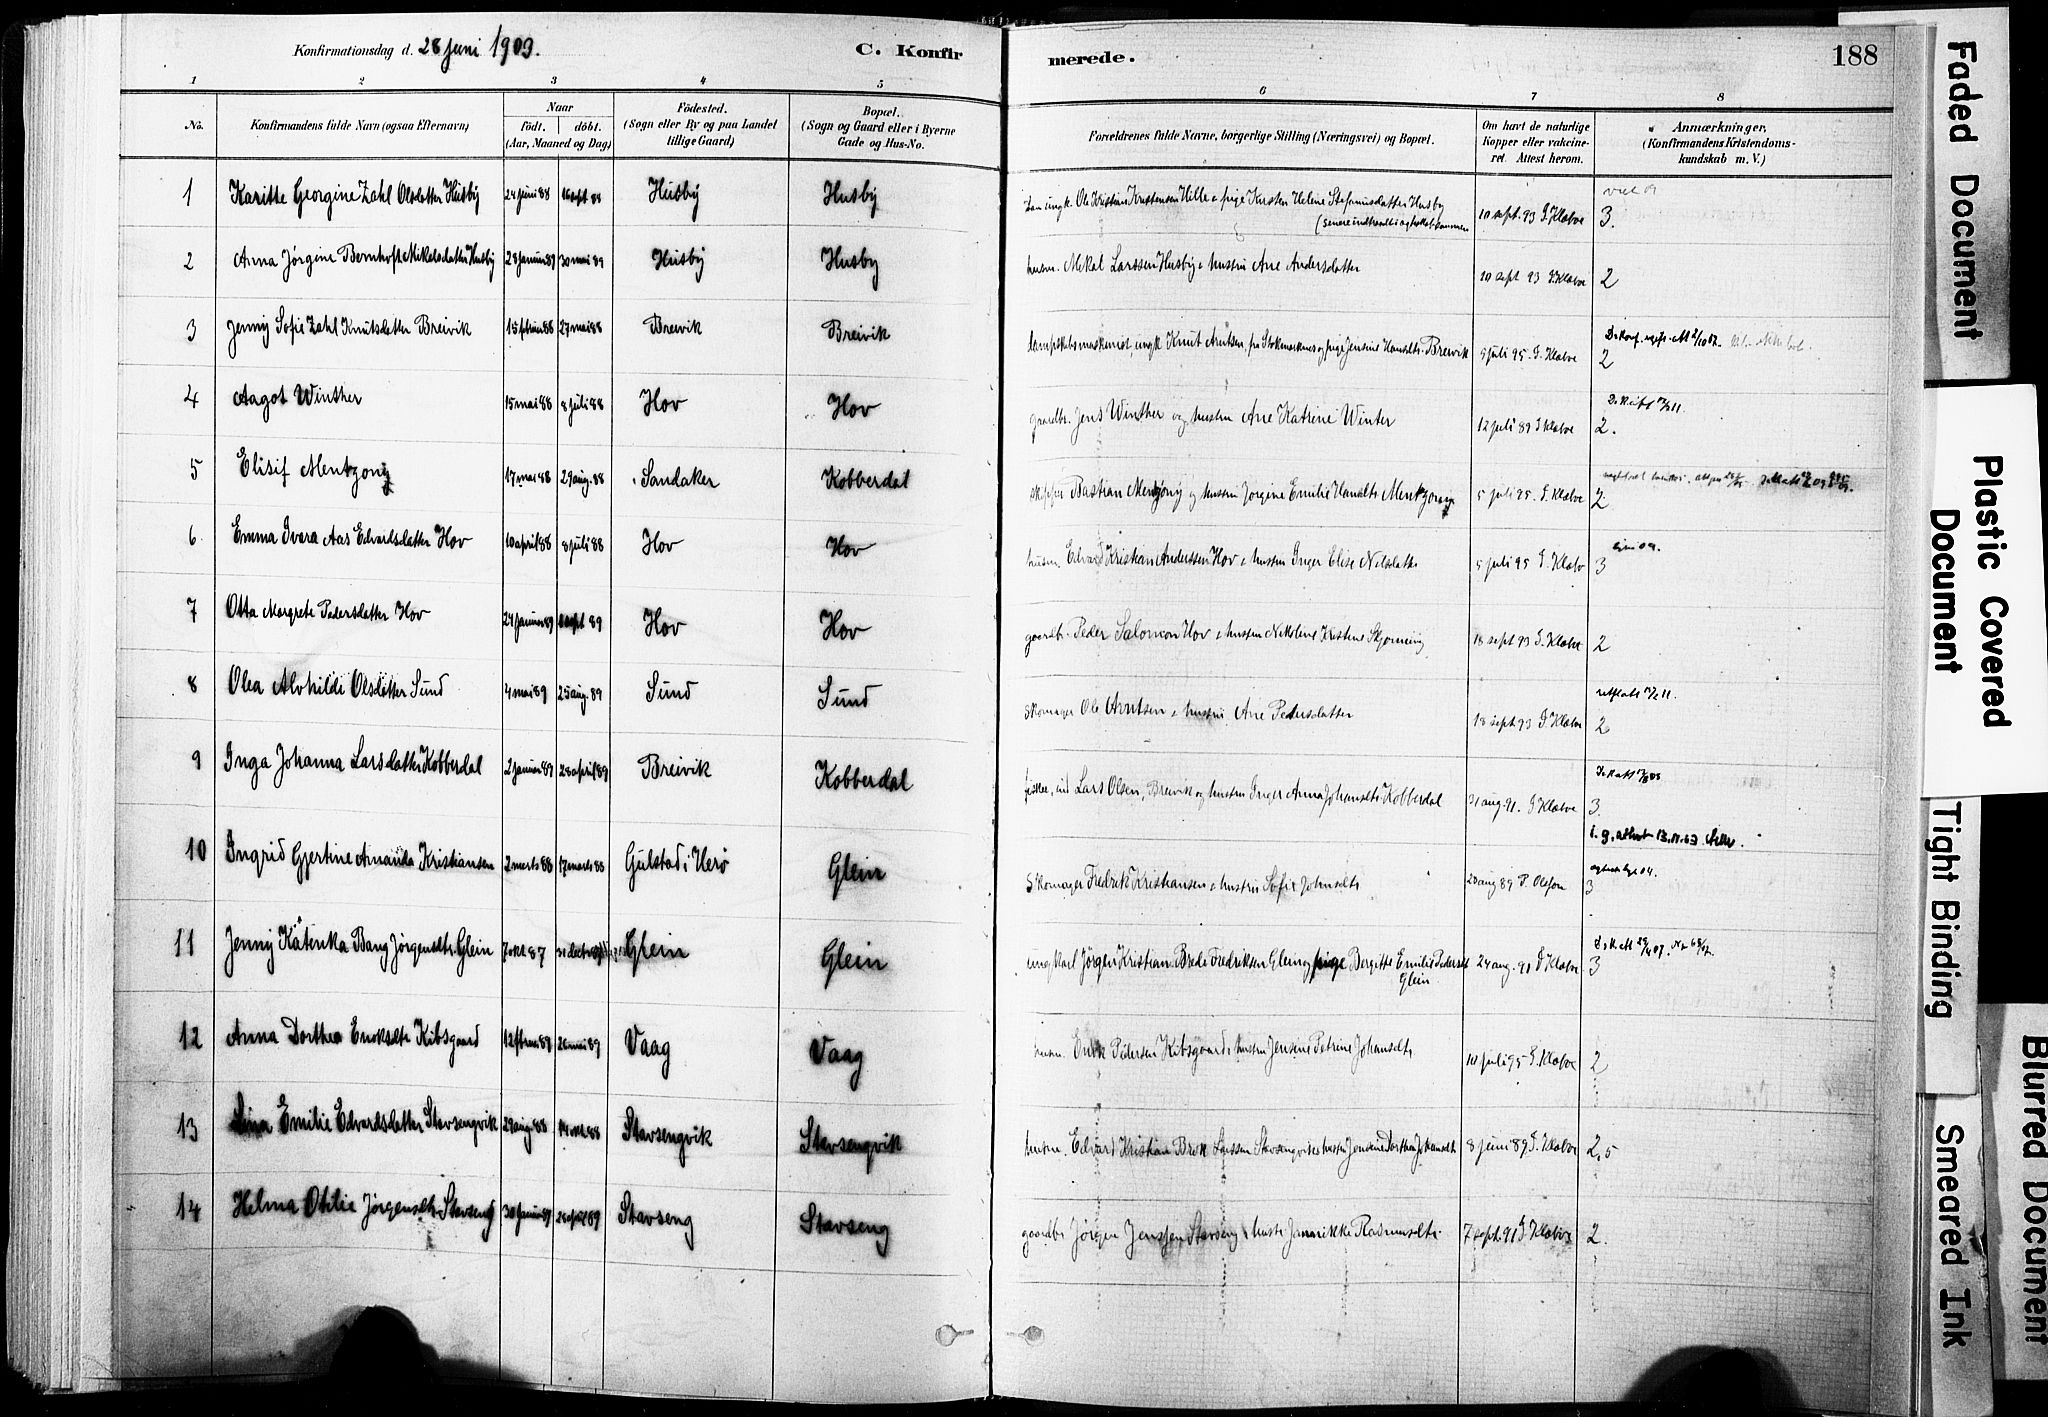 Konfirmationsdag d. 28 juni 1903.
C. Konfirmerede.
188
1 2 3 4 5 6 7 8
No.
Konfirmandens fulde Navn (ogsaa Efternavn)
Naar
födt. döbt.
(Aar, Maaned og Dag)
Födested.
(Sogn eller By og paa Landet
tillige Gaard)
Bopæl.
(Sogn og Gaard eller i Byerne
Gade og Hus-No.
Forældrenes fulde Navne, borgerlige Stilling (Næringsvei) og Bopæl.
Om havt de naturlige
Kopper eller vakcine-
ret. Attest herom.
Anmærkninger.
(Konfirmandens Kristendoms-
kundskab m. V.)
1 Karitte Georgine Zahl Olsdatter Husby 24 juni 88 Husby Husby Ole Kristian Kristensen Hille & pige Kirsten Helene Stefanusdatter Husby 10 sept. 93 J. Klæbve 3.
2 Anna Jørgine Bernhoft Mikelsdatter Husby 28 januar 89 30 mai 89 Husby Husby husm. Mikal Larssen Husby & hustru Ane Andersdatter 10 sept 93 J. Klæbve 2
3 Jenny Sofie Zahl Knutsdatter Breivik 15 februar 88 27 mai 88 Breivik Breivik ungk. Knut Arntsen, fra Stokmarknes og pige Jensine Hansdtr. Breivik 5 juli 95. J. Klæbve 2
4 Aagot Winther 15 mai 88 8 juli 88 Hov Hov gaardbr. Jens Winther og hustru Ane Katrine Winter 12 juli 89 J Klæbve 2.
5 Elisif Mentzony 17 mai 88 29 aug. 88 Sandaker Kobberdal skipper Bastian Mentzony og hustru Jørgine Emilie Hansdtr Mentzony 5 juli 95. J. Klæbve 2
6 Emma Ivara Aas Edvardsdatter Hov 10 april 88 8 juli 88 Hov Hov husm. Edvard Kristian Anderssen Hov & hustru Inger Elise Nilsdatter 5 juli 95 J. Klæbv 3
7 Otta Margrete Pedersdatter Hov 24 januar 89 sept 89 Hov Hov gaardbr. Peder Salomon Hov & hustru Nikoline Kristine Skjerming 18 sept 93 J. Klæbve 2
8 Olea Alvhilde Olsdatter Sund 4 mai 89 25 aug. 89 Sund Sund Skomager Ole Arntsen & hustru Ane Pedersdatter 18 sept. 93 J. Klæbve 2
9 Inga Johanna Larsdatter Kobberdal 2 januar 89 28 april 89 Breivik Kobberdal Lars Olsen, Breivik og hustru Inger Anna Johansdtr Kobberdal 31 aug. 91. J Klæbve 3.
10 Ingrid Gjertine Amanda Kristiansen 2 marts 88 17 marts 88 Gulstad i Herø Glein Skomager Fredrik Kristiansen & hustru Sofie Johnsdtr 28 aug 89 P. Olesen 3
11 Jenny Katinka Bang Jørgensdtr. Glein 7 okt 87 31 decbr 87 Glein Glein ungkarl Jørgen Kristian Brede Fredriksen Glein og pige Bergitte Emilie Pedersdtr Glein 24 aug. 91 J Klæbve 3
12 Anna Dorthea Enoksdtr Kibsgaard 12 februar 89 26 mai 89 Vaag Vaag husm. Enok Pedersen Kibsgaard & hustru Jensine Petrine Johansdtr 10 juli 95 J. Klæbve 2
13 Lina Emilie Edvardsdatter Stavsengvik 29 aug 88 14 okt 88 Stavsengvik Stavsengvik husm. Edvard Kristian Brok Larssen Stavsengvik & hustru Jensine Dorthea Johansdtr 8 juni 89 J. Klæbve 2,5
14 Helma Otilie Jørgensdtr Stavseng 30 januar 89 28 april 89 Stavseng Stavseng gaardbr Jørgen Jenssen Stavseng & hustr Jannikke Rasmusdtr. 7 sept. 91 J Klæbve 2.
Faded Document
Plastic Covered
Document
Tight Binding
Blurred Document
Smeared Ink